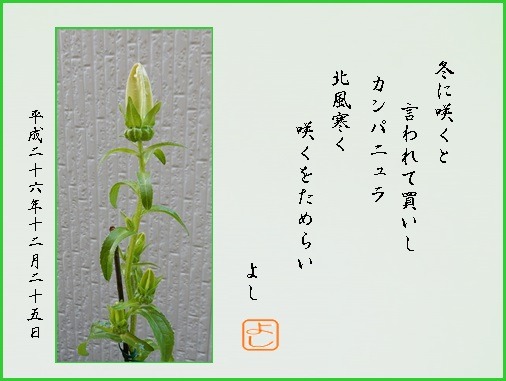 冬に咲くと
言われて買いし
カンパニュラ
北風寒く
咲くをためらい
よし
よし
平成二十六年十二月二十五日